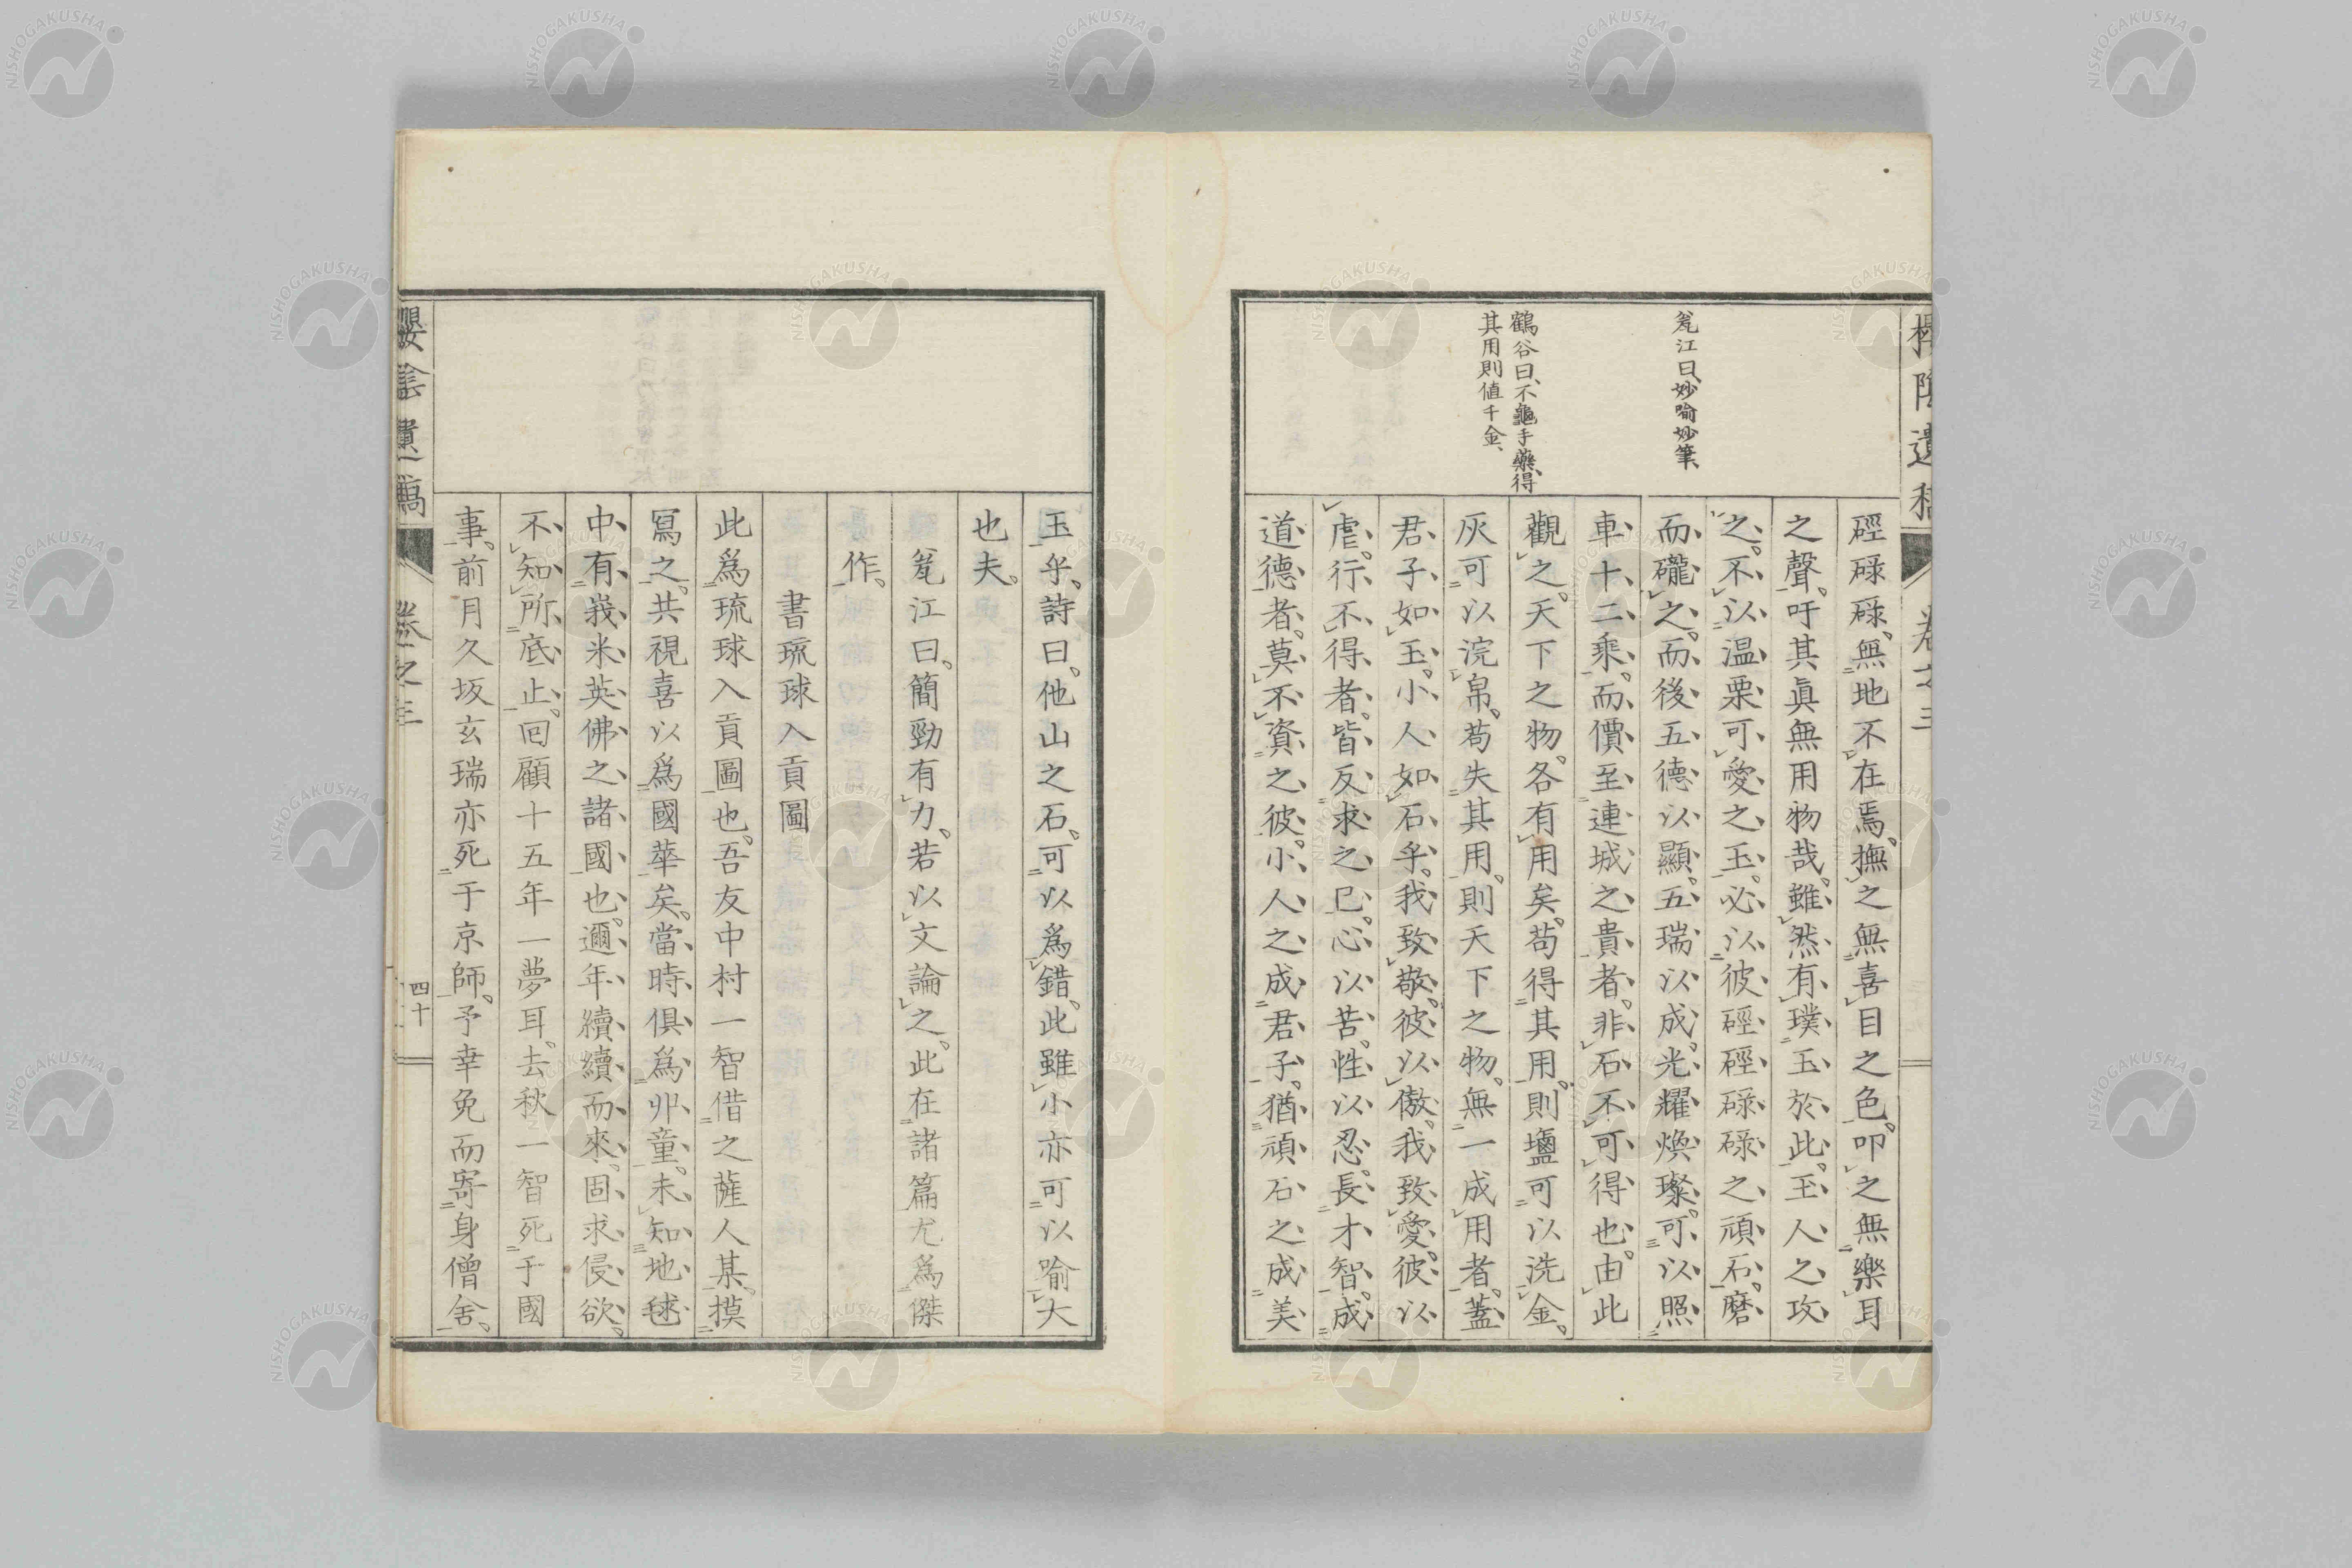 櫻陰遺稿 卷之三
甃江曰、妙喩妙筆、
鶴谷曰、不龜手藥、得
其用則値千金、
硜碌碌、無地不在焉、撫之無喜目之色。叩之無樂耳
之聲。吁其眞無用物哉。雖然有璞玉於此。至人之攻
之。不以温栗可愛之玉。必以彼硜硜碌碌之頑石。磨
而礲之。而後五德以顯。五瑞以成。光耀煥璨。可以照
車十二乘。而價至連城之貴者。非石不可得也。由此
觀之。天下之物。各有用矣。苟得其用。則鹽可以洗金。
灰可以浣帛。苟失其用。則天下之物。無一成用者。蓋
君子如玉。小人如石乎。我致敬。彼以傲。我致愛。彼以
虐。行不得者。皆反求之己。心以苦。性以忍。長才智。成
道德者。莫不資之彼。小人之成君子。猶頑石之成美
玉乎。詩曰。他山之石。可以爲錯。此雖小亦可以喩大
也夫。
甃江曰。簡勁有力。若以文論之。此在諸篇尤爲傑
作。
書琉球入貢圖
此爲琉球入貢圖也。吾友中村一智借之薩人某。摸
寫之。共視喜以爲國華矣。當時俱爲丱童。未知地毬
中有峩米英佛之諸國也。邇年續續而來。固求侵欲。
不知所底止。回顧十五年一夢耳。去秋一智死于國
事。前月久坂玄瑞亦死于京師。予幸免而寄身僧舍。
櫻陰遺稿 卷之三 四十